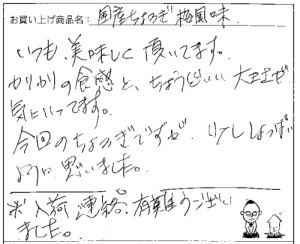 お買い上げ商品名：国産ちょろぎ梅風味
いつも美味しく頂いてます。
カリカリの食感と、ちょうどいい大きさが
気にいってます。
今回のちょろぎですが、少ししょっぱい
ように思いました。
※入荷連絡、有難うござい
ました。